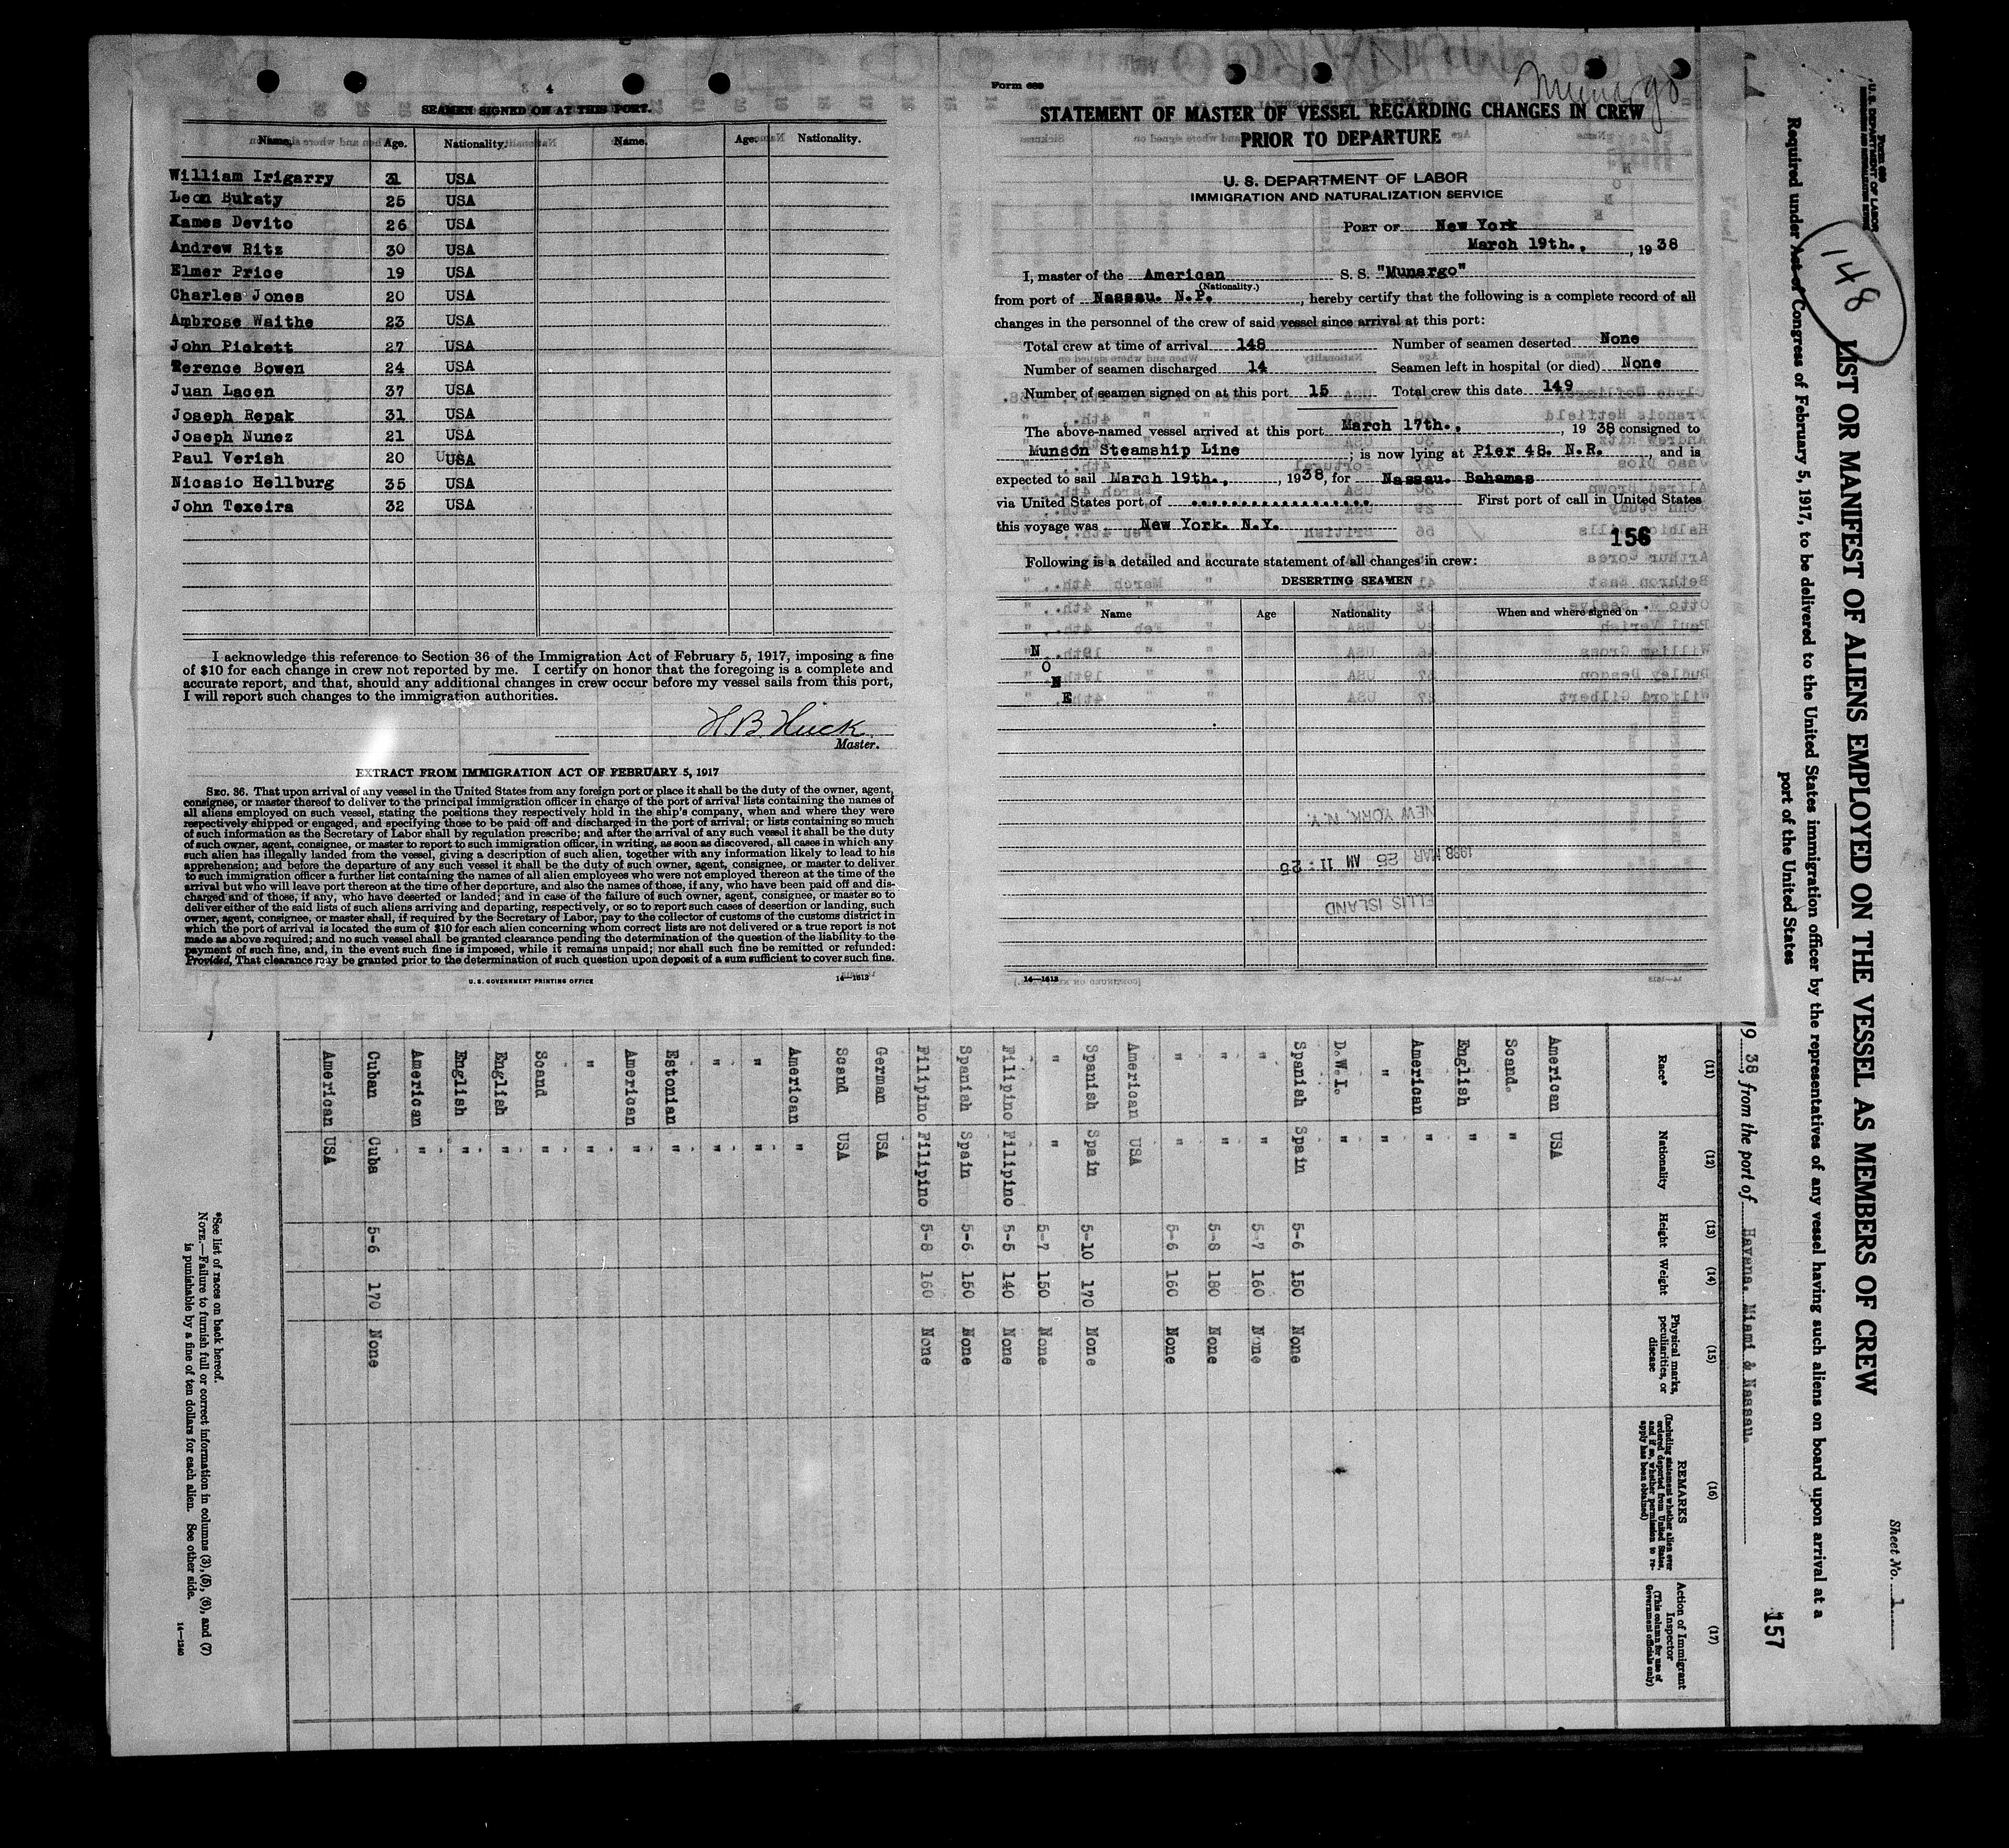 4
SEAMEN SIGNED ON AT THIS PORT.
Name. Age. Nationality. Name. Age. Nationality.
William Irigarry 31 USA
Leon Bukaty 25 USA
Kames Devito 26 USA
Andrew Ritz 30 USA
Elmer Price 19 USA
Charles Jones 20 USA
Ambrose Waithe 23 USA
John Pickett 27 USA
Terence Bowen 24 USA
Juan Lacen 37 USA
Joseph Repak 31 USA
Joseph Nunez 21 USA
Paul Verish 20 USA
Nicasio Hellburg 35 USA
John Texeira 32 USA
I acknowledge this reference to Section 36 of the Immigration Act of February 5, 1917, imposing a fine
of $10 for each change in crew not reported by me. I certify on honor that the foregoing is a complete and
accurate report, and that, should any additional changes in crew occur before my vessel sails from this port,
I will report such changes to the immigration authorities.
H B Huck
Master.
EXTRACT FROM IMMIGRATION ACT OF FEBRUARY 5, 1917
SEC. 36. That upon arrival of any vessel in the United States from any foreign port or place it shall be the duty of the owner, agent,
consignee, or master thereof to deliver to the principal immigration officer in charge of the port of arrival lists containing the names of
all aliens employed on such vessel, stating the positions they respectively hold in the ship's company, when and where they were
respectively shipped or engaged, and specifying those to be paid off and discharged in the port of arrival; or lists containing so much
of such information as the Secretary of Labor shall by regulation prescribe; and after the arrival of any such vessel it shall be the duty
of such owner, agent, consignee, or master to report to such immigration officer, in writing, as soon as discovered, all cases in which any
such alien has illegally landed from the vessel, giving a description of such alien, together with any information likely to lead to his
apprehension; and before the departure of any such vessel it shall be the duty of such owner, agent, consignee, or master to deliver
to such immigration officer a further list containing the names of all alien employees who were not employed thereon at the time of the
arrival but who will leave port thereon at the time of her departure, and also the names of those, if any, who have been paid off and dis-
charged and of those, if any, who have deserted or landed; and in case of the failure of such owner, agent, consignee, or master so to
deliver either of the said lists of such aliens arriving and departing, respectively, or so to report such cases of desertion or landing, such
owner, agent, consignee, or master shall, if required by the Secretary of Labor, pay to the collector of customs of the customs district in
which the port of arrival is located the sum of $10 for each alien concerning whom correct lists are not delivered or a true report is not
made as above required; and no such vessel shall be granted clearance pending the determination of the question of the liability to the
payment of such fine, and, in the event such fine is imposed, while it remains unpaid; nor shall such fine be remitted or refunded:
Provided, That clearance may be granted prior to the determination of such question upon deposit of a sum sufficient to cover such fine.
U. S. GOVERNMENT PRINTING OFFICE 14—1613
Form 689
Munargo
STATEMENT OF MASTER OF VESSEL REGARDING CHANGES IN CREW
PRIOR TO DEPARTURE
U. S. DEPARTMENT OF LABOR
IMMIGRATION AND NATURALIZATION SERVICE
PORT OF New York
March 19th., , 1938
I, master of the American S. S. "Munargo"
(Nationality.)
from port of Nassau. N.P. , hereby certify that the following is a complete record of all
changes in the personnel of the crew of said vessel since arrival at this port:
Total crew at time of arrival 148 Number of seamen deserted None
Number of seamen discharged 14 Seamen left in hospital (or died) None
Number of seamen signed on at this port 15 Total crew this date 149
The above-named vessel arrived at this port March 17th., , 1938 consigned to
Munson Steamship Line ; is now lying at Pier 48. N.R. , and is
expected to sail March 19th., , 1938, for Nassau. Bahamas
via United States port of ................ First port of call in United States
this voyage was New York. N.Y.
156
Following is a detailed and accurate statement of all changes in crew:
DESERTING SEAMEN
Name Age Nationality When and where signed on
N
O
N
E
NEW YORK, N.Y.
1938 MAR 25 AM 11:25
ELLIS ISLAND
14—1613
Form 689
U. S. DEPARTMENT OF LABOR
148
LIST OR MANIFEST OF ALIENS EMPLOYED ON THE VESSEL AS MEMBERS OF CREW
Sheet No. 1
Required under Act of Congress of February 5, 1917, to be delivered to the United States immigration officer by the representatives of any vessel having such aliens on board upon arrival at a
port of the United States
157
19 38, from the port of Havana. Miami & Nassau.
(11) (12) (13) (14) (15) (16) (17)
Race* Nationality Height Weight Physical marks, peculiarities, or disease REMARKS (Including statement whether alien ever ordered deported from United States, and if so, whether permission to re-apply has been obtained) Action of Immigrant Inspector (This column for use of Government officials only)
American USA
Scand. "
English "
American "
" "
D.W.I. "
Spanish Spain 5-6 150 None
" " 5-7 160 None
" " 5-8 180 None
" " 5-6 160 None
American USA
Spanish Spain 5-10 170 None
" " 5-7 150 None
Filipino Filipino 5-5 140 None
Spanish Spain 5-6 150 None
Filipino Filipino 5-8 160 None
German USA
Scand USA
American "
" "
" "
Estonian "
American "
" "
Scand "
English "
English "
American "
Cuban Cuba 5-6 170 None
American USA
*See list of races on back hereof.
NOTE.—Failure to furnish full or correct information in columns (3), (5), (6), and (7)
is punishable by a fine of ten dollars for each alien. See other side.
14—1240